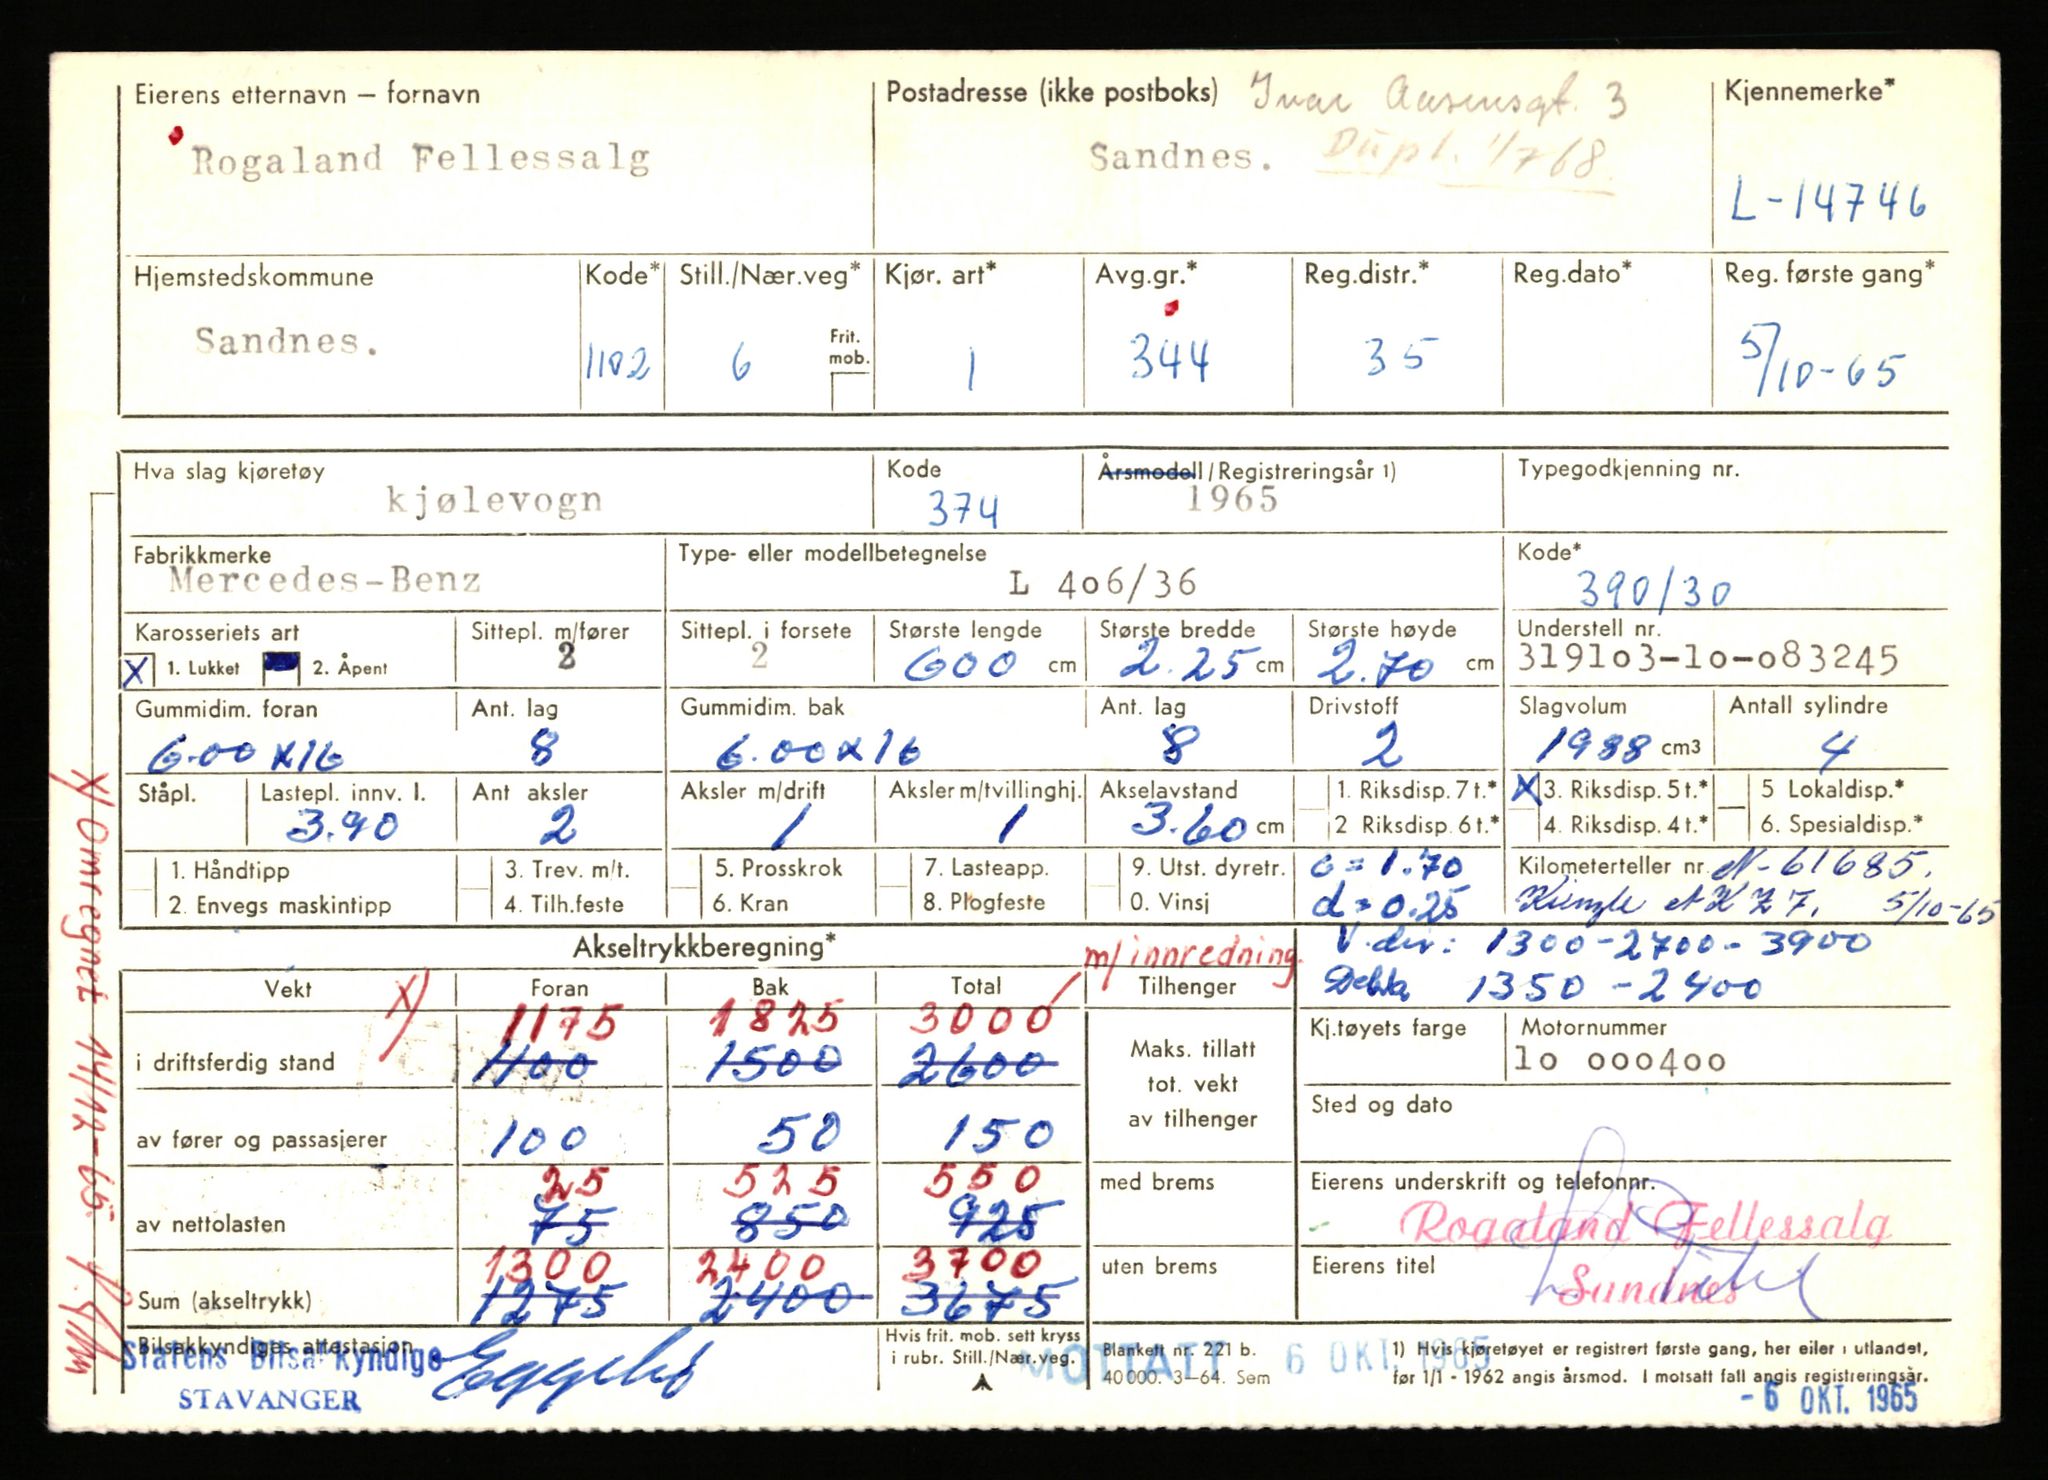 Eierens etternavn – fornavn
Rogaland Fellessalg
Postadresse (ikke postboks) Ivar Aasensgt. 3
Sandnes. Dupl. 1/7 68.
Kjennemerke*
L-14746
Hjemstedskommune
Sandnes.
Kode*
1102
Still./Nær.veg*
6
Frit. mob.
Kjør. art*
1
Avg.gr.*
344
Reg.distr.*
35
Reg.dato*
Reg. første gang*
5/10-65
Hva slag kjøretøy
kjølevogn
Kode
374
Årsmodell/Registreringsår 1)
1965
Typegodkjenning nr.
Fabrikkmerke
Mercedes-Benz
Type- eller modellbetegnelse
L 406/36
Kode*
390/30
Karosseriets art
X 1. Lukket 2. Åpent
Sittepl. m/fører
2
Sittepl. i forsete
2
Største lengde
600 cm
Største bredde
2.25 cm
Største høyde
2.70 cm
Understell nr.
319103-10-083245
Gummidim. foran
6.00x16
Ant. lag
8
Gummidim. bak
6.00x16
Ant. lag
8
Drivstoff
2
Slagvolum
1988 cm3
Antall sylindre
4
Ståpl.
Lastepl. innv. l.
3.90
Ant aksler
2
Aksler m/drift
1
Aksler m/tvillinghj.
1
Akselavstand
3.60 cm
1. Riksdisp. 7 t.*
2 Riksdisp. 6 t.*
X 3. Riksdisp. 5 t.*
4. Riksdisp. 4 t.*
5 Lokaldisp.*
6. Spesialdisp.*
1. Håndtipp
2. Envegs maskintipp
3. Trev. m/t.
4. Tilh.feste
5. Prosskrok
6. Kran
7. Lasteapp.
8. Plogfeste
9. Utst. dyretr.
0. Vinsj
c = 1.70
d = 0.25
Kilometerteller nr. N-61685.
Kienzle at K Z 7. 5/10-65
Akseltrykkberegning*
m/innredning.
V. dev: 1300-2700-3900
1350-2400
Vekt
x)
Foran
Bak
Total
Tilhenger
1175 1825 3000
i driftsferdig stand 1100 1500 2600
av fører og passasjerer 100 50 150
25 525 550
av nettolasten 75 850 925
1300 2400 3700
Sum (akseltrykk) 1275 2400 3675
Maks. tillatt
tot. vekt
av tilhenger
med brems
uten brems
Kj.tøyets farge
Motornummer
10 000400
Sted og dato
Eierens underskrift og telefonnr.
Rogaland Fellessalg
Eierens titel
Sandnes
Bilsakkyndiges attestasjon
Statens Bilsakkyndige
STAVANGER
Hvis frit. mob. sett kryss
i rubr. Still./Nær.veg.
MOTTATT 6 OKT. 1965
Blankett nr. 221 b.
40 000. 3–64. Sem
1) Hvis kjøretøyet er registrert første gang, her eller i utlandet,
før 1/1 - 1962 angis årsmod. I motsatt fall angis registreringsår.
- 6 OKT. 1965
x) Omregnet 14/12-65